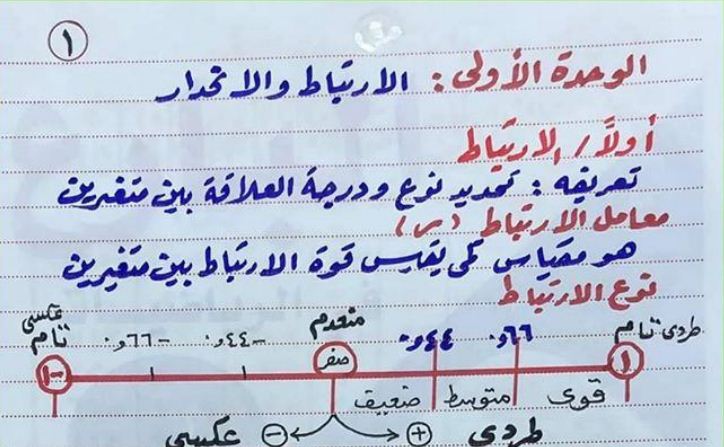 ١
الوحدة الأولى : الارتباط والانحدار
أولاً / الارتباط
تعريفه : تحديد نوع ودرجة العلاقة بين متغيرين
معامل الارتباط (ر)
هو مقياس كمي يقيس قوة الارتباط بين متغيرين
نوع الارتباط
طردى تام ٠,٦٦ ٠,٤٤ منعدم -٠,٤٤ -٠,٦٦ عكسى تام
١ صفر -١
قوى متوسط ضعيف
طردى + - عكسى